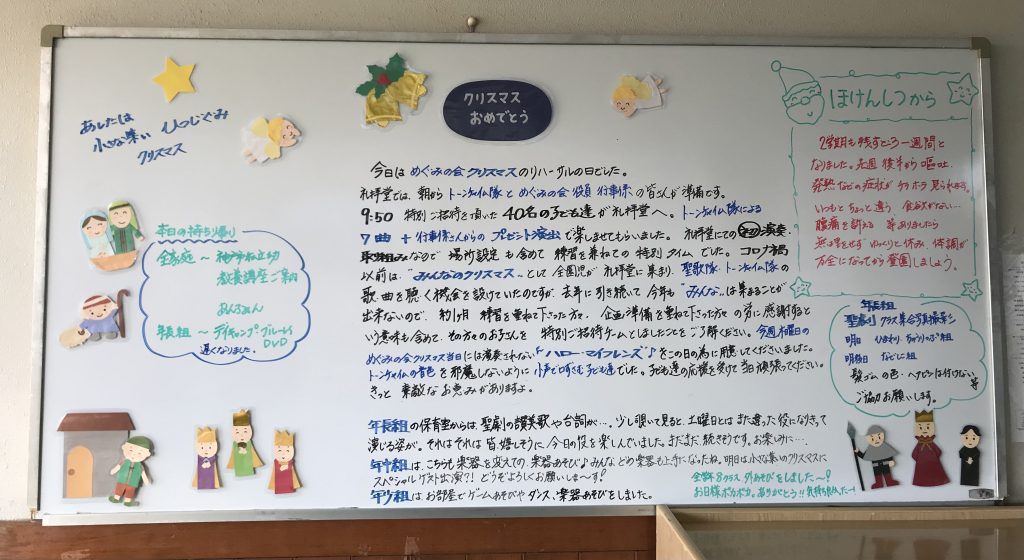 クリスマス
おめでとう
あしたは
小さな集い ひつじぐみ
クリスマス
本日の持ち帰り
全家庭～
教養講座ご案内
年長組～デイキャンプ ブルーレイ
DVD
遅くなりました。
今日は めぐみの会 クリスマスのリハーサルの日でした。
礼拝堂では、朝から トーンチャイム隊 と めぐみの会 役員 行事係の皆さんが準備です。
9:50 特別ご招待を頂いた 40名の子ども達が 礼拝堂へ。トーンチャイム隊による
7曲 + 行事係さんからの プレゼント演出で楽しませてもらいました。礼拝堂にての 演奏
取り組みなので 場所設定 も含めて 練習を兼ねての 特別タイム でした。コロナ禍
以前は、"みんなのクリスマス" として 全園児が 礼拝堂に集まり、聖歌隊・トーンチャイムの
歌・曲 を聴く機会を設けていたのですが、去年に引き続いて 今年も "みんな"は集まることが
出来ないので、約1ヶ月 練習を重ねて下さった方々、企画準備を重ねて下さった方々の労に感謝すると
いう意味も含めて、その方々のお子さんを 特別ご招待ゲストとしましたことをご了解ください。今週木曜日の
めぐみの会クリスマス当日には演奏されない "ハロー・マイフレンズ"♪ をこの日の為に用意してくださいました。
トーンチャイムの音色を邪魔しないように 小声で口ずさむ子ども達でした。子ども達の応援を受けて 当日頑張ってください。
きっと 素敵な お恵みがありますよ。
年長組の保育室からは、聖劇の讃美歌や台詞が…。少し覗いて見ると、土曜日とは また違った役になりきって
演じる姿が。それぞれは 皆嬉しそうに、今日の役を楽しんでいました。まだまだ 続きそうです。お楽しみに…。
年中組は、こちらも楽器を変えての、楽器あそび♪みんな どの楽器も上手になったね。明日は 小さな集いのクリスマスに
スペシャルゲスト出演?! どうぞよろしくお願いしま～す!
年少組は、お部屋でゲームあそびや ダンス、楽器あそびをしました。
全学年 クラス 外あそびをしました～!
お日様ポカポカ。ありがとう!! 気持ち良かった～!
ほけんしつから
2学期も残すところ一週間と
なりました。先週 後半から 嘔吐、
発熱 などの症状が チラホラ 見られます。
いつもと ちょっと違う 食欲がない…
腹痛を訴える 等ありましたら
無理をせず ゆっくりと休み、体調が
万全になってから 登園しましょう。
年長組
聖劇 クラス集合写真撮影
明日 ひまわり、ちゅうりっぷ組
明後日 なでしこ組
髪ゴムの色・ヘアピンは付けない 等
ご協力お願いします。